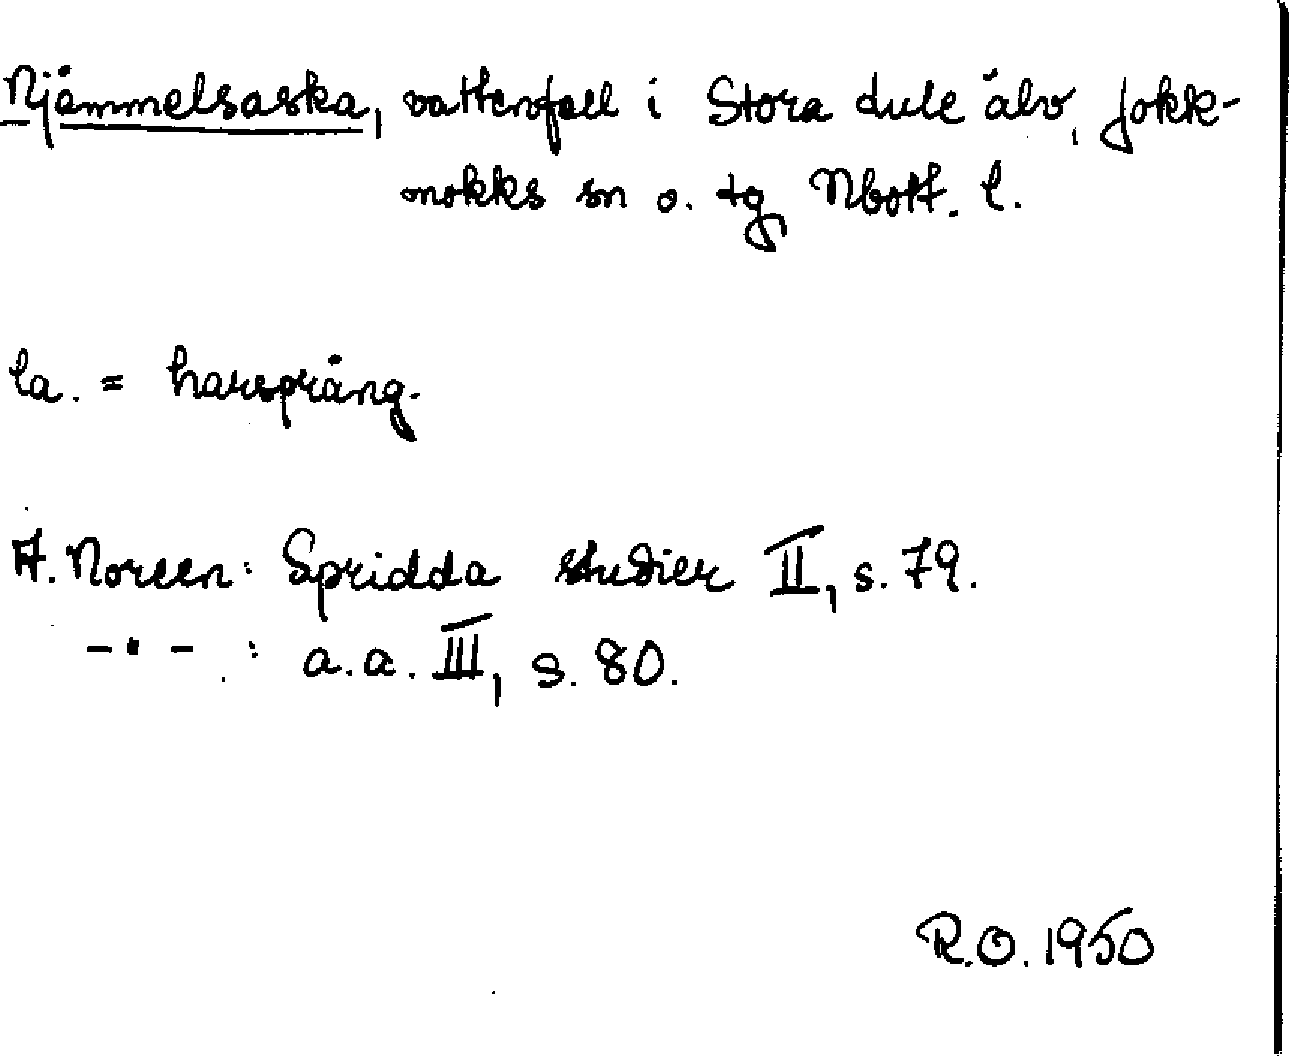 Njåmmelsaska, vattenfall i Stora Lule älv, Jokk-
mokks sn o. tg Nbott. l.
la. = harsprång.
A. Noreen: Spridda studier II, s. 79.
- " - : a.a. III, s. 80.
R.O. 1950